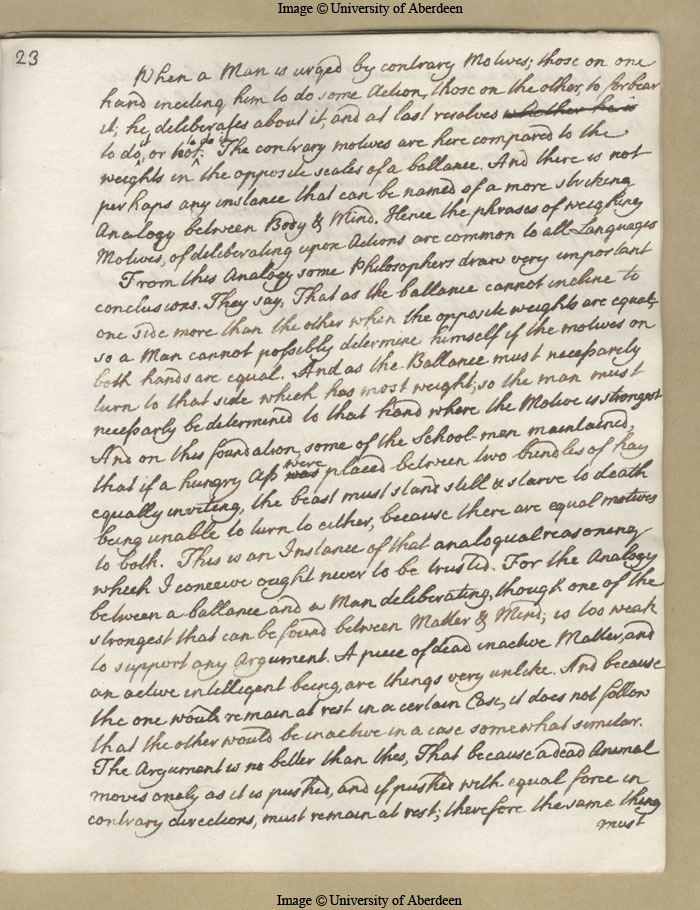 Image © University of Aberdeen
23
When a Man is urged by contrary Motives; those on one
hand inciting him to do some Action, those on the other, to forbear
it; he deliberates about it, and at last resolves whether he is
to do it, or not to do it. The contrary motives are here compared to the
weights in the opposite scales of a ballance. And there is not
perhaps any instance that can be named of a more striking
Analogy between Body & Mind. Hence the phrases of weighing
Motives, of deliberating upon Actions are common to all Languages
From this Analogy some Philosophers draw very important
conclusions. They say, That as the ballance cannot incline to
one side more than the other when the opposite weights are equal;
so a Man cannot possibly determine himself if the motives on
both hands are equal. And as the Ballance must necessarly
turn to that side which has most weight; so the man must
necessarly be determined to that hand where the Motive is strongest
And on this foundation some of the School-men maintained,
that if a hungry Ass was were placed between two bundles of hay
equally inviting, the beast must stand still & starve to death
being unable to turn to either, because there are equal motives
to both. This is an Instance of that analogual reasoning
which I conceive ought never to be trusted. For the Analogy
between a ballance and a Man deliberating, though one of the
strongest that can be found between Matter & Mind; is too weak
to support any Argument. A piece of dead inactive Matter, and
an active intelligent being, are things very unlike. And because
the one would remain at rest in a certain Case, it does not follow
that the other would be inactive in a case somewhat similar.
The Argument is no better than this, That because a dead Animal
moves onely as it is pushed, and if pushed with equal force in
contrary directions, must remain at rest; therefore the same thing
must
Image © University of Aberdeen